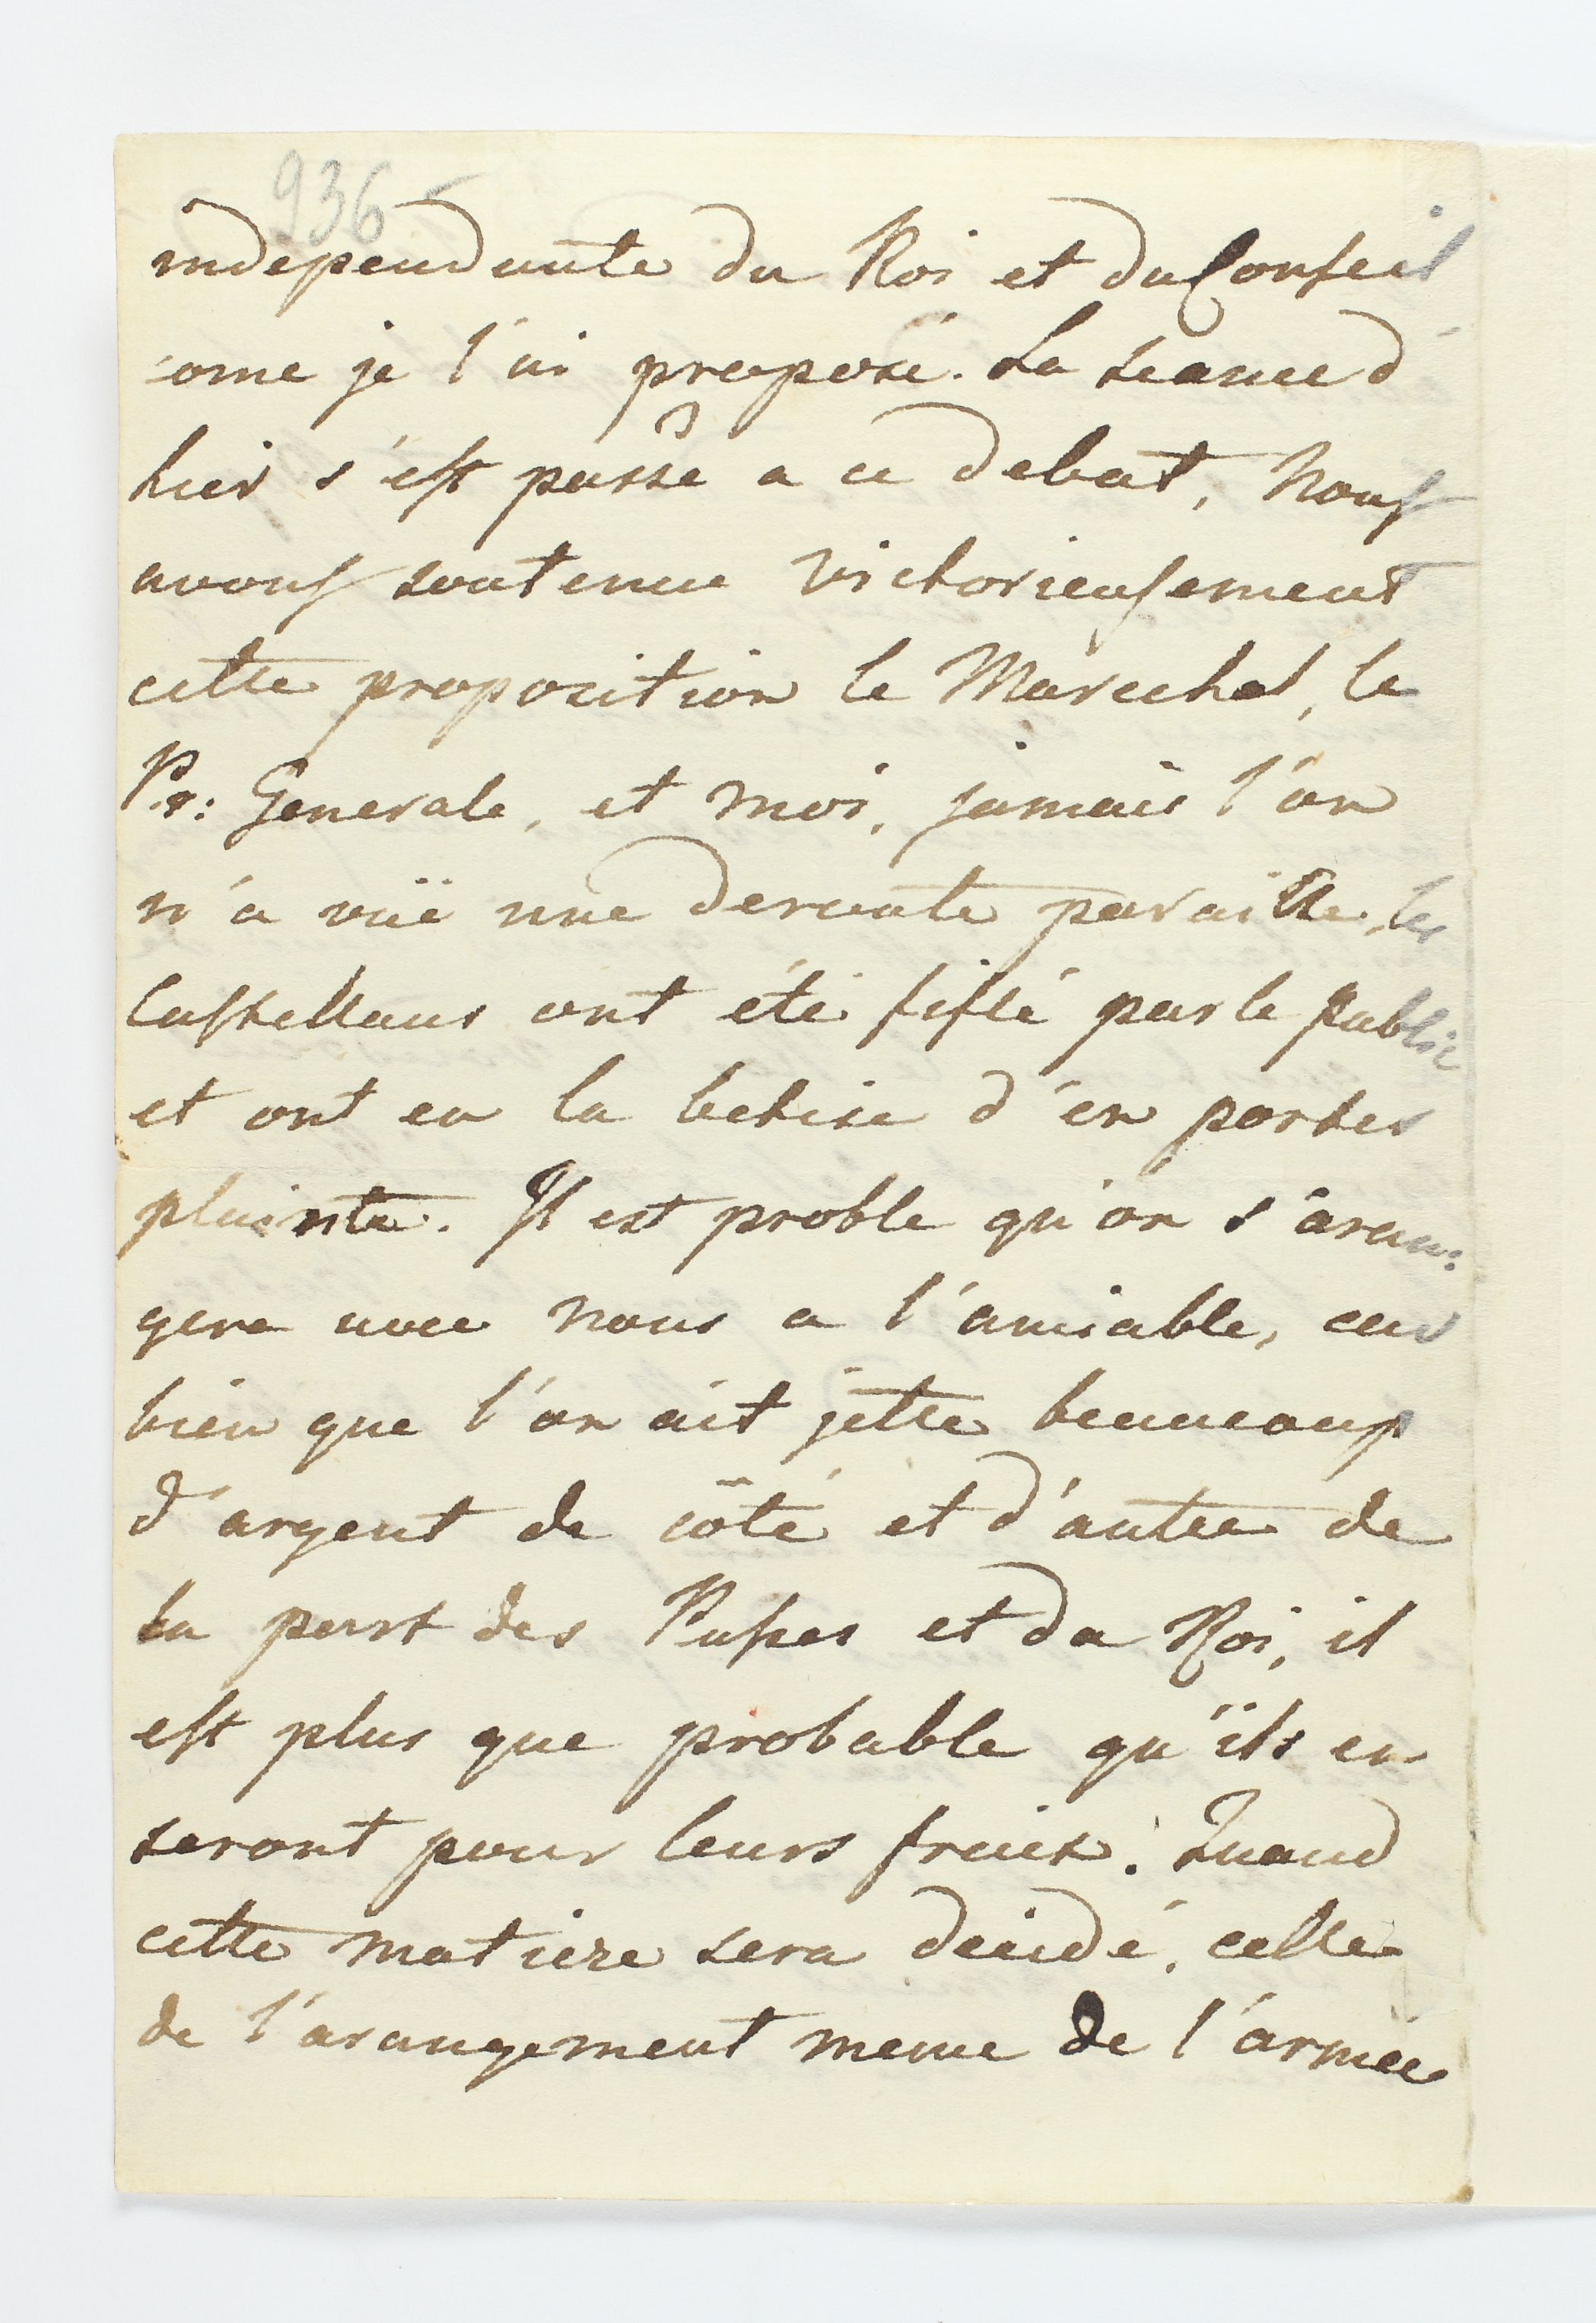 936
independante du Roi et du Conseil
come je l'ai proposé. La seance d'
hier s'est passé a ce debat, nous
avons soutenue victorieusement
cette proposition le Marechal, le
Pr: Generale, et moi, jamais l'on
n'a vuë une deroute pareille, les
Castellans ont été siflé par le public
et ont eu la betise d'en porter
plainte. Il est proble qu'on s'aran:
gera avec nous a l'amiable, car
bien que l'on ait jette beaucoup
d'argent de côté et d'autre de
la part des Russes et du Roi, il
est plus que probable qu'ils en
seront pour leurs frais. Quand
cette matiere sera decidé, celle
de l'arangement meme de l'armée